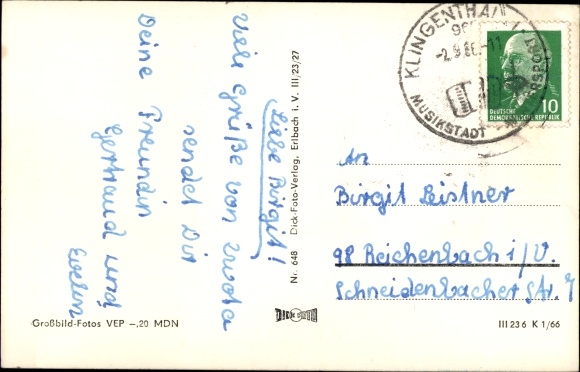 Liebe Birgit!
Viele Grüße von Zwota
sendet Dir
Deine Freundin
Gertraud und
Evelin
Großbild-Fotos VEP –,20 MDN
Nr. 648 Dick-Foto-Verlag, Erlbach i. V. III/23/27
DICK
KLINGENTHAL
2.9.66-11
MUSIKSTADT
10
DEUTSCHE
DEMOKRATISCHE REPUBLIK
An
Birgit Leistner
98 Reichenbach i/V.
Schneidenbacher Str. 7
III 23 6 K 1/66